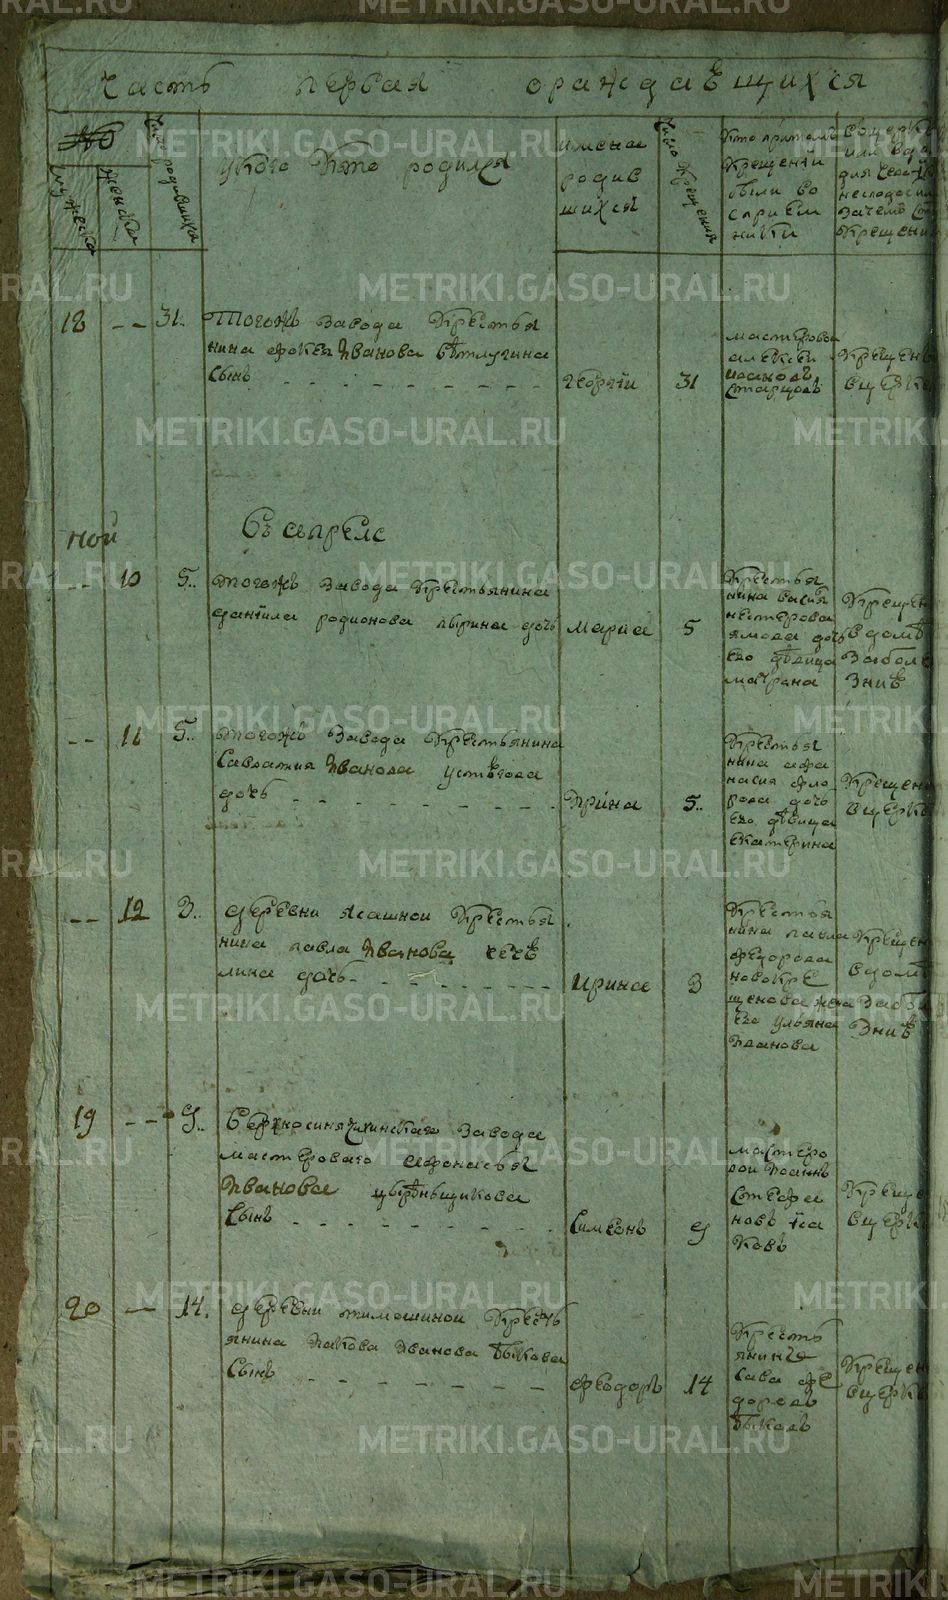 Часть первая ораждаѣщихся
№
мужеска
женска
число родившихъ
укого кто родился
имена
родив
шихся
число крещения
кто притомъ
крещении
были во
спри ем
ники
вцерк
или вдо
для чего
Зачемъ
крещени
18 -- 31..
Тогожъ завода крестья
нина фокея Иванова вѣтлугина
сынъ
георгии
31
мастерово
алексеи
исаковъ
старцовъ
крещенъ
вцерк
ной
въ апреле
-- 10 5..
тогожъ завода крестьянина
данiила родионова лырина дочь
мария
5
крестья
нина васил
нестерова
ямова дочь
его дѣвица
матрона
крещен
вдомѣ
Заболе
Зниѣ
-- 11 5..
тогожъ завода крестьянина
савватия Иванова устюгова
дочь
Ирина
5..
крестья
нина афа
насия фло
рова дочь
его дѣвица
екатерина
крещен
вцерк
-- 12 3..
деревни ясашнои крестья
нина павла Иванова кечѣ
лина дочь
ирина
3
крестья
нина павла
федорова
новокре
щенова жена
его ульяна
Иванова
крещен
вдомѣ
Забо
Зниѣ
19 -- 9..
верхосинячихинскаго завода
мастероваго афонасья
Иванова цырѣньщикова
сынъ
симеонъ
9
мастеро
вои Иоаннъ
стефа
новъ iса
ковъ
креще
вцерк
20 -- 14.
деревни тимошинои кресть
янина Иакова Иванова быкова
сынъ
феодоръ
14
кресть
янинъ
сава фе
доровъ
быковъ
крещен
вцерк
METRIKI.GASO-URAL.RU